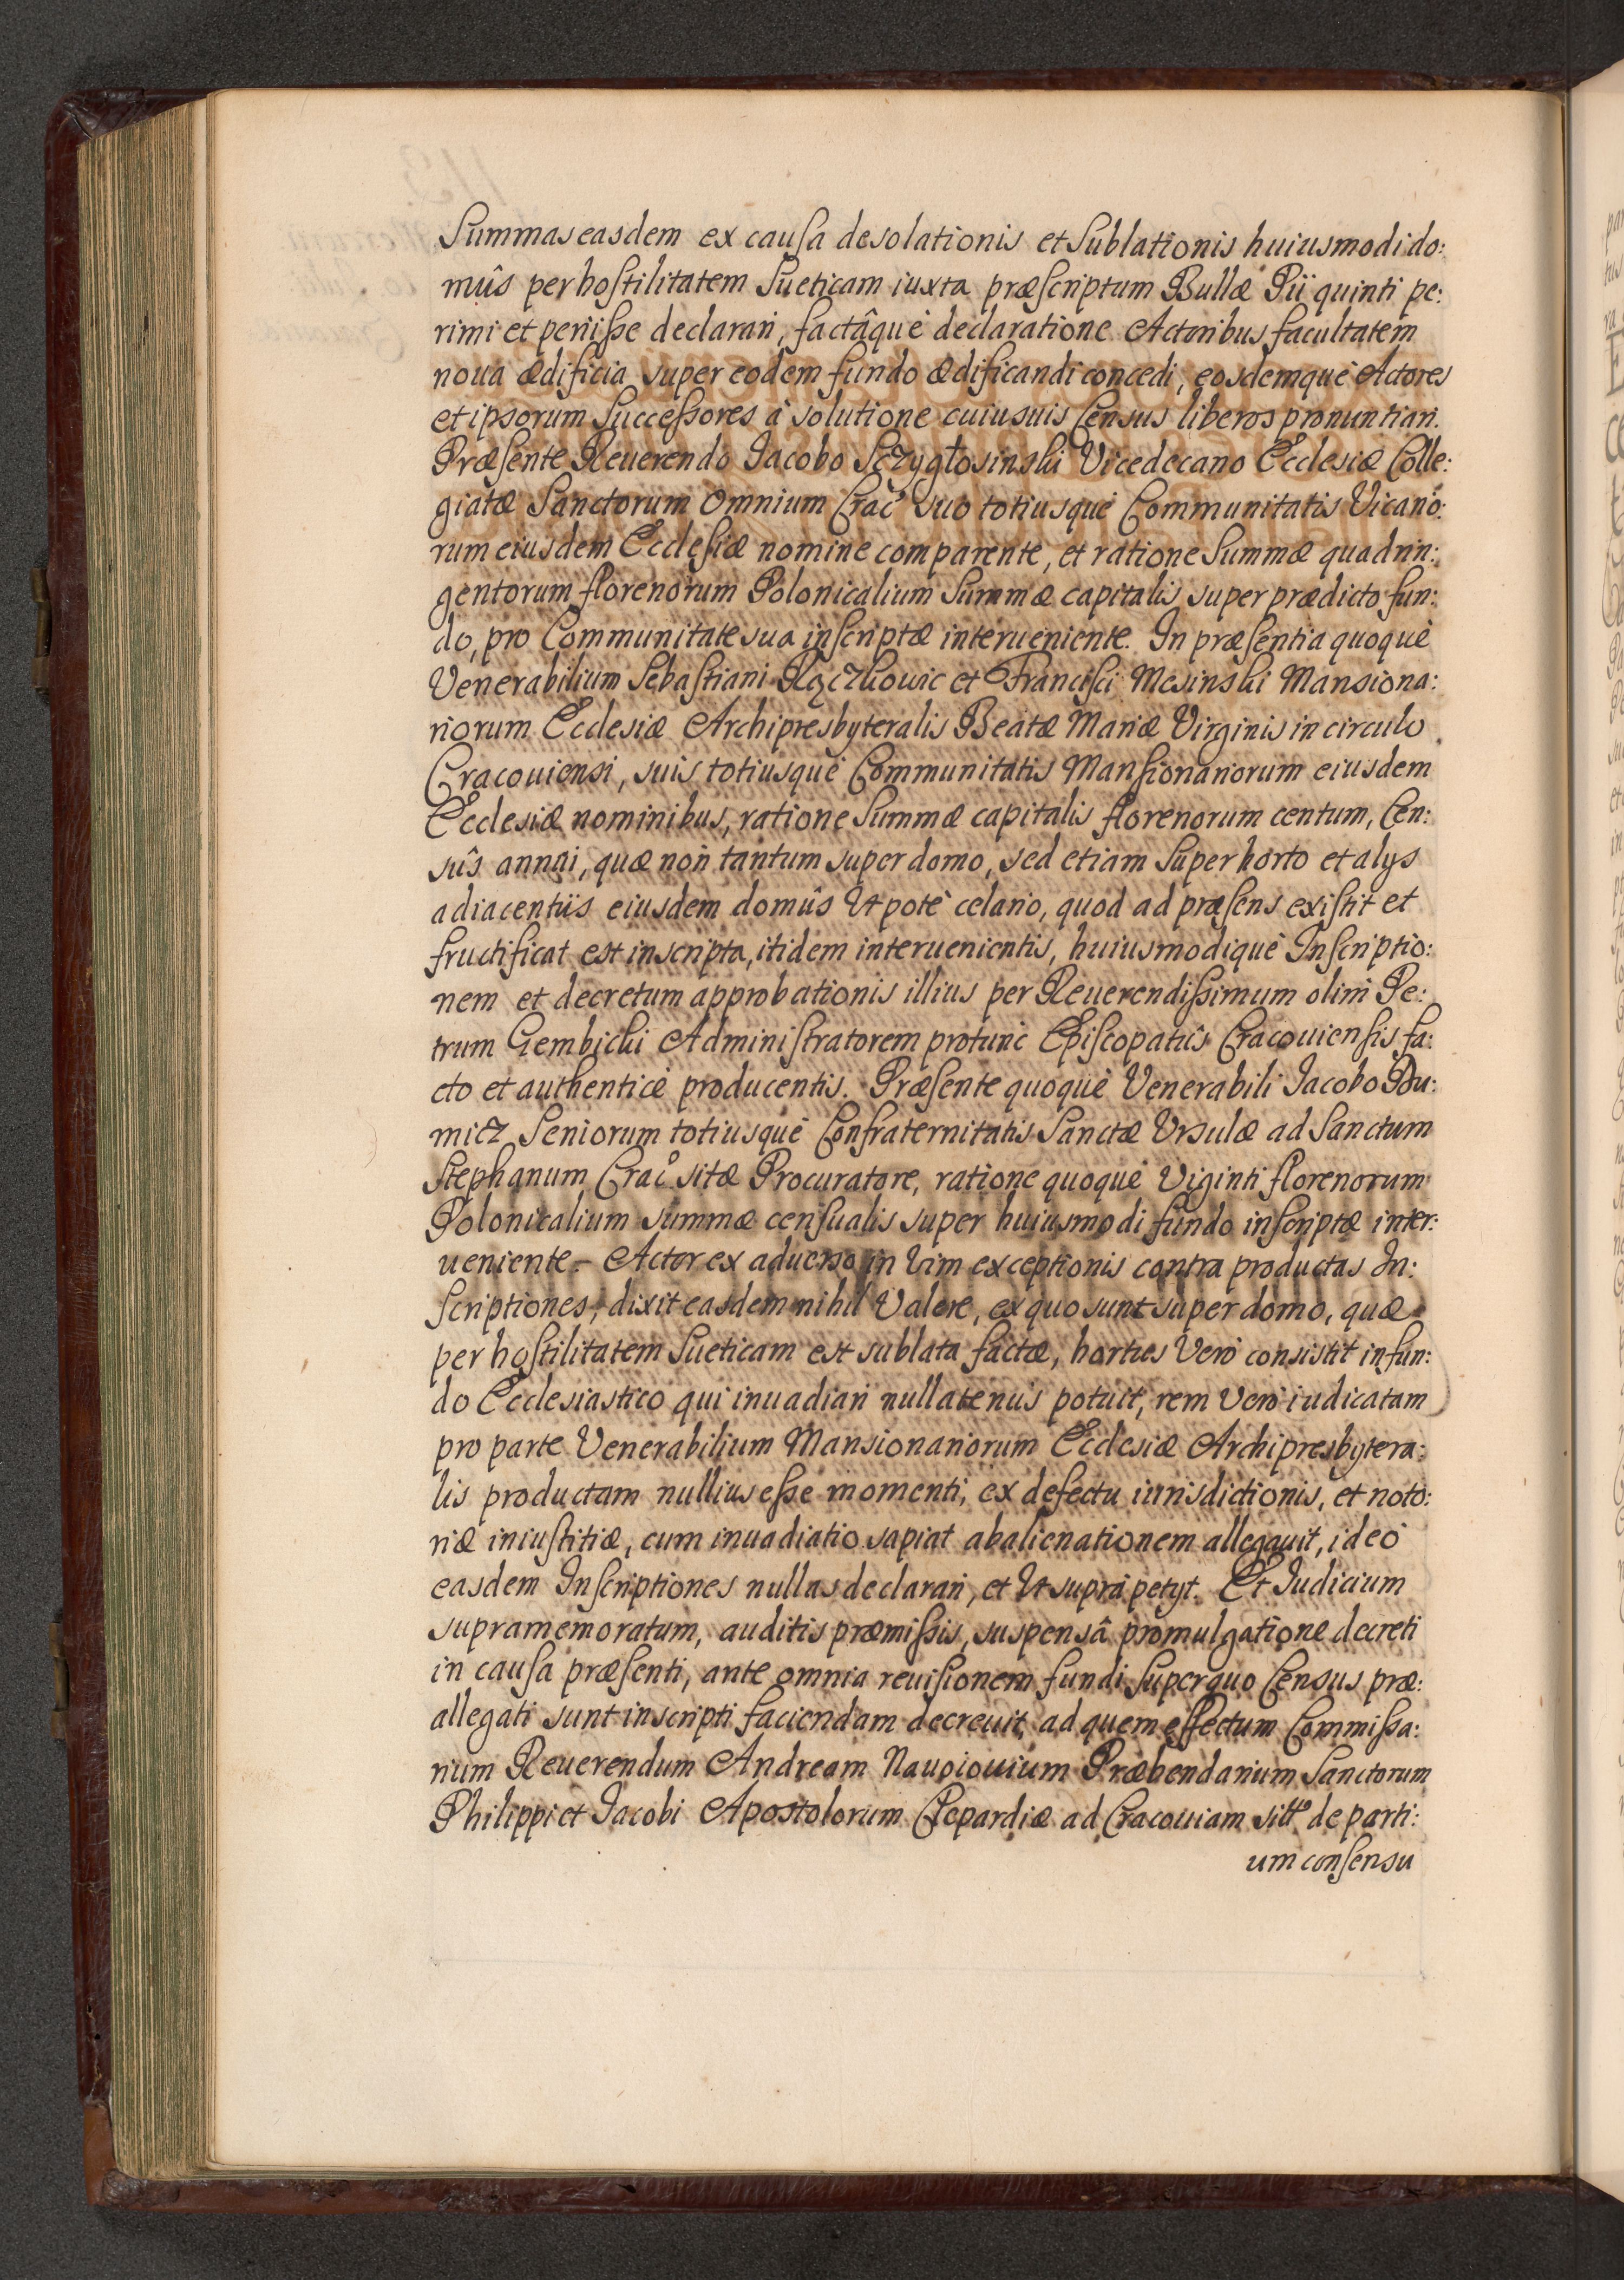 Summas easdem ex causa desolationis et Sublationis huiusmodi do:
mûs per hostilitatem Sueticam iuxta præscriptum Bullæ Pii quinti pe:
rimi et periisse declarari, factâque declaratione Actoribus facultatem
noua ædificia super eodem fundo ædificandi concedi, eosdemque Actores
et ipsorum Successores à solutione cuiusuis Census liberos pronuntiari.
Præsente Reuerendo Iacobo Sczygłosinski Vicedecano Ecclesiæ Colle:
giatæ Sanctorum Omnium Crac suo totiusque Communitatis Vicario:
rum eiusdem Ecclesiæ nomine comparente, et ratione Summæ quadrin:
gentorum florenorum Polonicalium Summæ capitalis super prædicto fun:
do, pro Communitate sua inscriptæ interueniente. In præsentia quoque
Venerabilium Sebastiani Rączkowic et Francisci Mesinski Mansiona:
riorum Ecclesiæ Archipresbyteralis Beatæ Mariæ Virginis in circulo
Cracouiensi, suis totiusque Communitatis Mansionariorum eiusdem
Ecclesiæ nominibus, ratione Summæ capitalis florenorum centum, Cen:
sûs annui, quæ non tantum super domo, sed etiam Super horto et alijs
adiacentiis eiusdem domûs Vt pote celario, quod ad præsens existit et
fructificat est inscripta, itidem interuenientis, huiusmodique Inscriptio:
nem et decretum approbationis illius per Reuerendissimum olim Pe:
trum Gembicki Administratorem protunc Episcopatûs Cracouiensis fa:
cto et authenticè producentis. Præsente quoque Venerabili Iacobo Du:
micz Seniorum totiusque Confraternitatis Sanctæ Vrsulæ ad Sanctum
Stephanum Crac sitæ Procuratore, ratione quoque Viginti florenorum
Polonicalium summæ censualis super huiusmodi fundo inscriptæ inter:
ueniente. Actor ex aduerso in Vim exceptionis contra productas In:
scriptiones, dixit easdem nihil Valere, ex quo sunt super domo, quæ
per hostilitatem Sueticam est sublata factæ, hortus Verò consistit in fun:
do Ecclesiastico qui inuadiari nullatenus potuit, rem Verò iudicatam
pro parte Venerabilium Mansionariorum Ecclesiæ Archipresbytera:
lis productam nullius esse momenti, ex defectu iurisdictionis, et noto:
riæ iniustitiæ, cum inuadiatio sapiat abalienationem allegauit, ideò
easdem Inscriptiones nullas declarari, et Vt supra petyt. Et Iudicium
supramemoratum, auditis præmissis, suspensâ promulgatione decreti
in causa præsenti, ante omnia reuisionem fundi Super quo Census præ:
allegati sunt inscripti faciendam decreuit, ad quem effectum Commissa:
rium Reuerendum Andream Nauoiouium Præbendarium Sanctorum
Philippi et Iacobi Apostolorum Clepardiæ ad Cracouiam de parti:
um consensu